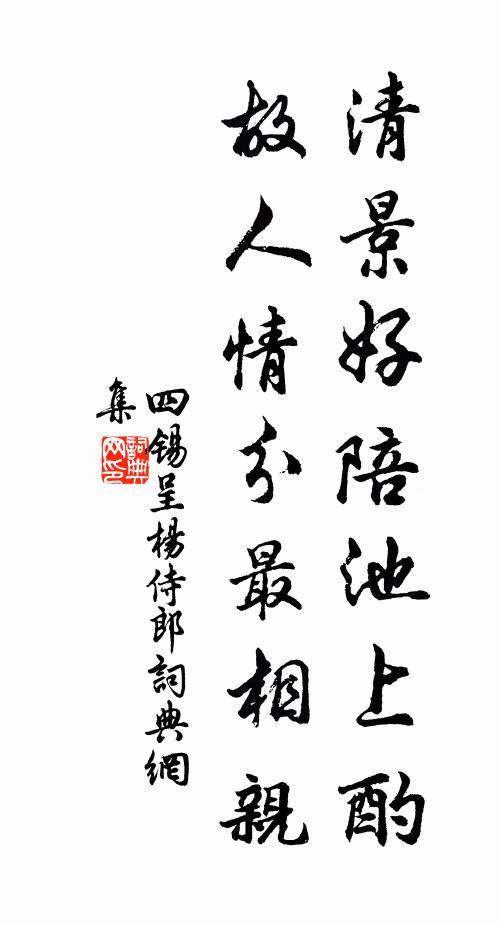 清景好陪池上酌
故人情分最相親
四錫呈楊侍郎詞典網
集
詞典
网印